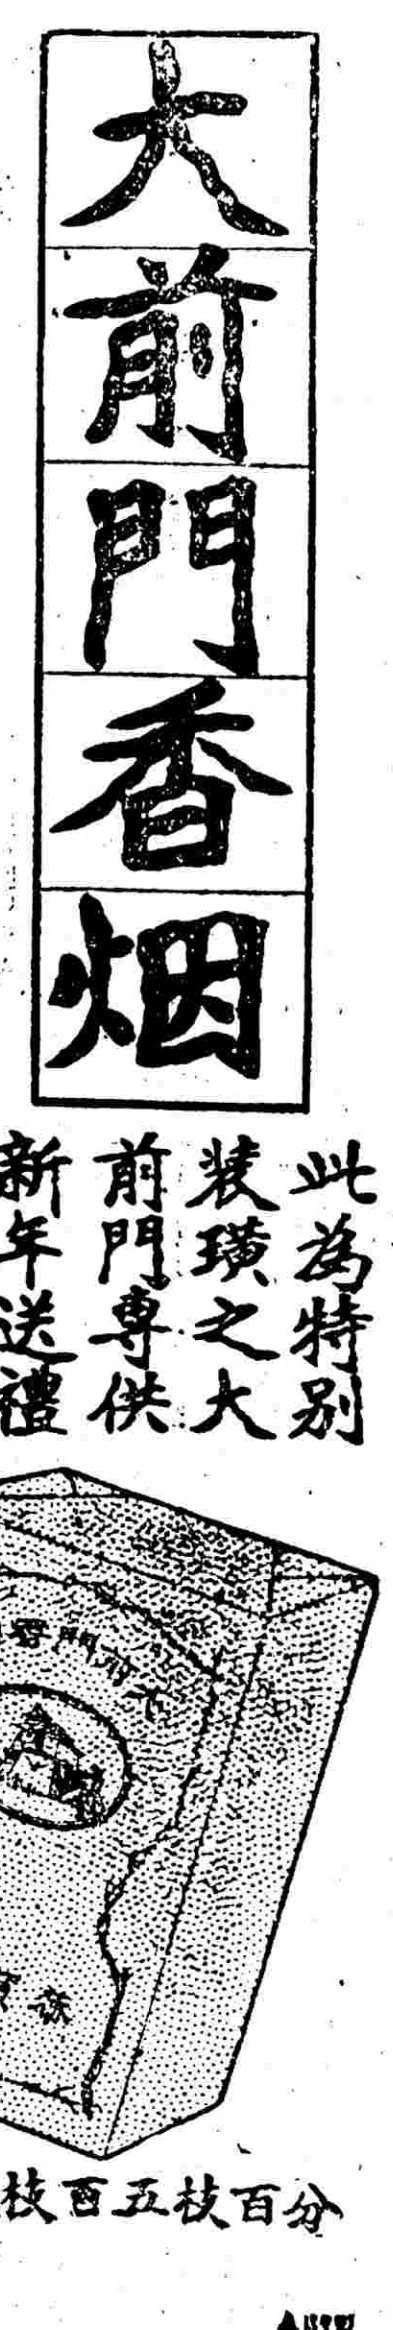 大前門香烟
此為特別
裝璜之大
前門專供
新年送禮
大前門香
分百枝五百枝